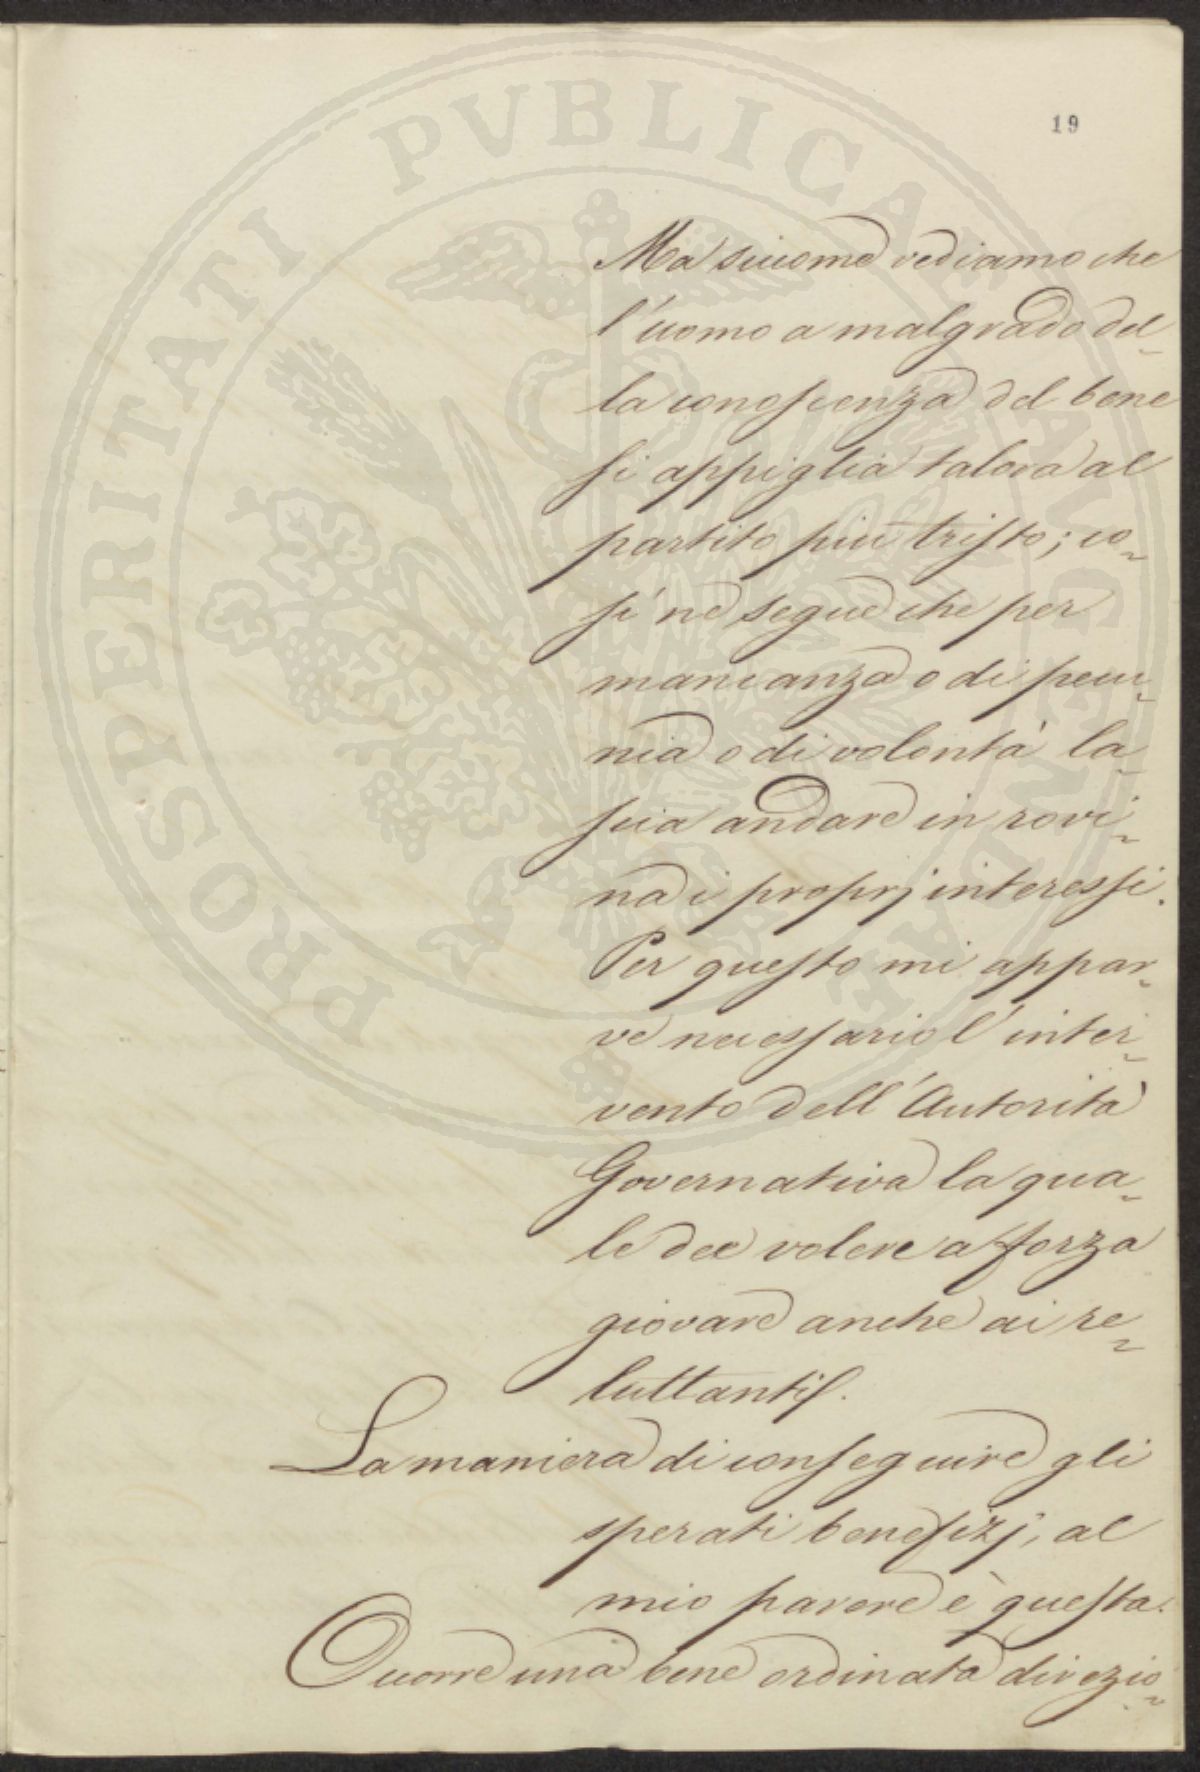 19
Ma siccome vediamo che
l'uomo a malgrado del-
la conoscenza del bene
si appiglia talora al
partito più tristo; co-
sì ne segue che per
mancanza o di pecu-
nia o di volontà la-
scia andare in rovi-
na i proprj interessi.
Per questo mi appar-
ve necessario l'inter-
vento dell'Autorità
Governativa la qua-
le dee volere a forza
giovare anche ai re-
luttanti.
La maniera di conseguire gli
sperati benefizj, al
mio parere è questa.
Occorre una bene ordinata direzio-
PROSPERITATI PVBLICAE AVGENDAE